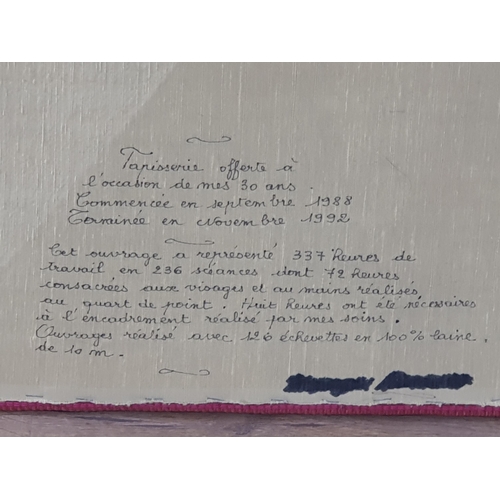 Tapisserie offerte à
l'occasion de mes 30 ans.
Commencée en septembre 1988
Terminée en Novembre 1992
Cet ouvrage a représenté 337 heures de
travail en 236 séances dont 72 heures
consacrées aux visages et au mains réalisés
au quart de point. Huit heures ont été nécessaires
à l'encadrement réalisé par mes soins.
Ouvrages réalisé avec 126 échevettes en 100% laine
de 10 m.